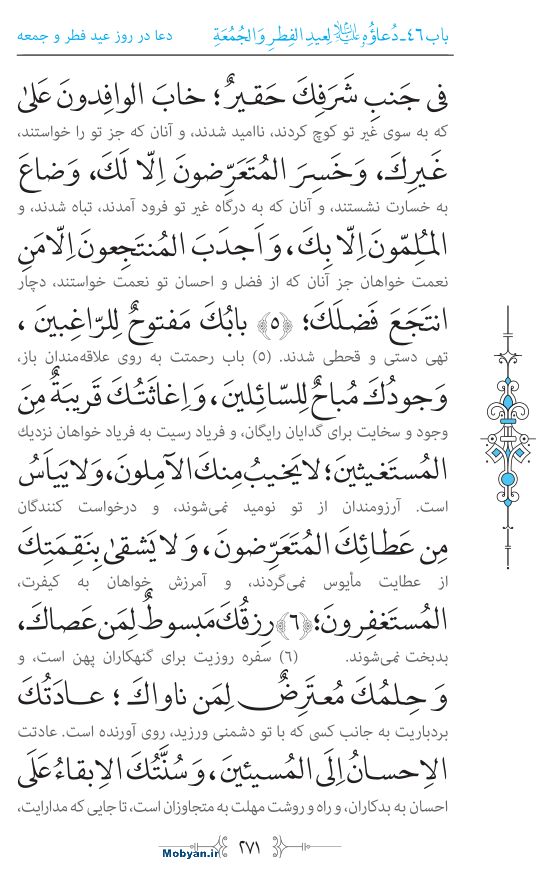 باب ۴۶ـ دُعاؤُهُ علیه السلام لِعیدِ الفِطرِ وَالجُمُعَةِ
دعا در روز عید فطر و جمعه
فی جَنبِ شَرَفِكَ حَقیرٌ؛ خابَ الوافِدونَ عَلیٰ
که به سوی غیر تو کوچ کردند، ناامید شدند، و آنان که جز تو را خواستند،
غَیرِكَ، وَخَسِرَ المُتَعَرِّضونَ اِلّا لَكَ، وَضاعَ
به خسارت نشستند، و آنان که به درگاه غیر تو فرود آمدند، تباه شدند، و
المُلِمّونَ اِلّا بِكَ، وَ اَجدَبَ المُنتَجِعونَ اِلّا مَنِ
نعمت خواهان جز آنان که از فضل و احسان تو نعمت خواستند، دچار
انتَجَعَ فَضلَكَ؛ ﴿۵﴾ بابُكَ مَفتوحٌ لِلرّاغِبینَ ،
تهی دستی و قحطی شدند. (۵) باب رحمتت به روی علاقه‌مندان باز،
وَ جودُكَ مُباحٌ لِلسّائِلینَ، وَ اِغاثَتُكَ قَریبَةٌ مِنَ
وجود و سخایت برای گدایان رایگان، و فریاد رسیت به فریاد خواهان نزدیك
المُستَغیثینَ؛ لا یَخیبُ مِنكَ الآمِلونَ، وَلا یَیأَسُ
است. آرزومندان از تو نومید نمی‌شوند، و درخواست کنندگان
مِن عَطائِكَ المُتَعَرِّضونَ، وَ لا یَشقیٰ بِنَقِمَتِكَ
از عطایت مأیوس نمی‌گردند، و آمرزش خواهان به کیفرت،
المُستَغفِرونَ؛ ﴿۶﴾ رِزقُكَ مَبسوطٌ لِمَن عَصاكَ،
بدبخت نمی‌شوند. (۶) سفره روزیت برای گنهکاران پهن است، و
وَ حِلمُكَ مُعتَرِضٌ لِمَن ناواكَ ؛ عادَتُكَ
بردباریت به جانب کسی که با تو دشمنی ورزید، روی آورنده است. عادتت
الاِحسانُ اِلَی المُسیئینَ، وَ سُنَّتُكَ الاِبقاءُ عَلَی
احسان به بدکاران، و راه و روشت مهلت به متجاوزان است، تا جایی که مدارایت،
۲۷۱
Mobyan.ir